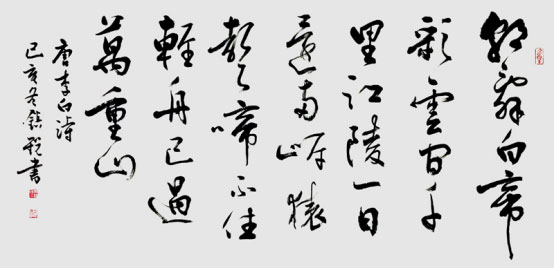 朝辭白帝
彩雲間千
里江陵一日
還兩岸猿
聲啼不住
輕舟已過
萬重山
唐李白詩
己亥冬書